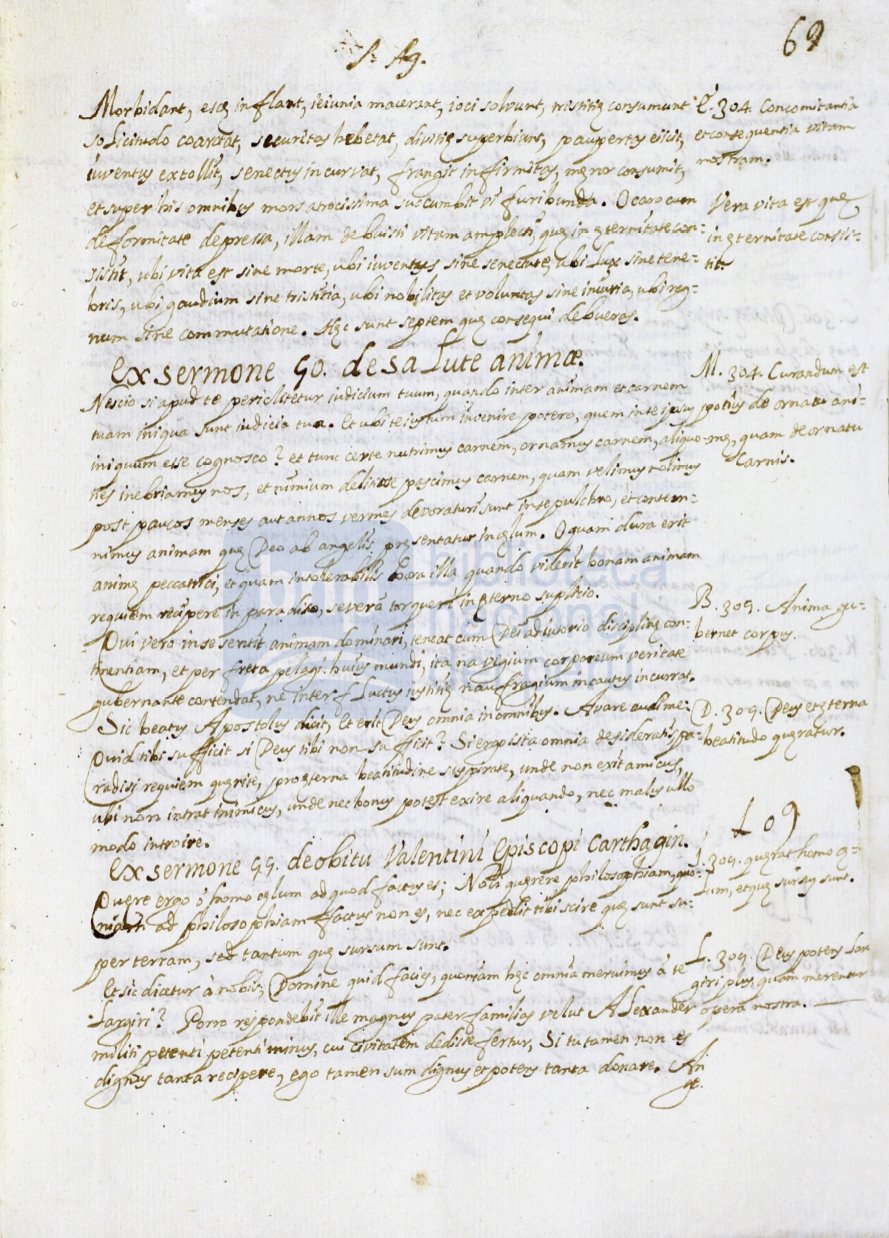 69
S. Ag.
Morbidant, escę inflant, ieiunia macerant, ioci solvunt, tristitię consumunt
solicitudo coartat, securitas hebetat, divitię superbiant, paupertas eiicit,
iuventus extollit, senectus incurvat, frangit infirmitas, męror consumit,
et super his omnibus mors atrocissima succumbit vi furibunda. O caro cum
deformitate depressa, illam debuisti vitam amplecti quę in ęternitate con-
sistit, ubi vita est sine morte, ubi iuventus sine senectute, ubi Lux sine tene-
bris, ubi gaudium sine tristitia, ubi nobilitas et voluntas sine iniuria, ubi reg-
num sine commutatione. Hęc sunt septem quę consequi debueras.
E. 304. Concomitantia
et consequentia vitam
nostram.
Vera vita est quę
in ęternitate consis-
tit.
Ex sermone 50. de saLute animæ.
Nescio si apud te periclitetur iudicium tuum, quando inter animam et carnem
tuam iniqua sunt iudicia tua. Et ubi te iustum invenire potero, quem in te ipsus
iniquum esse cognosco? et tunc certe nutrimus carnem, ornamus carnem, aliquo-
ties inebriamus nos, et nimium delitiose pascimus carnem, quam velimus nolimus
post paucos menses aut annos vermes devoraturi sunt in sepulchro, et contem-
nimus animam quę Deo ab angelis pręsentatur in cęlum. O quam dura erit
animę peccatrici, et quam intolerabilis hora illa quando viderit bonam animam
requiem recipere in paradiso, se vero torqueri in ęterno suplicio.
M. 304. Curandum est
potius de ornatu ani-
mę, quam de ornatu
Carnis.
Qui vero in se sentit animam dominari, teneat cum Dei adiutorio disciplinę con-
tinentiam, et per freta pelagi huius mundi, ita navigium corporeum veritate
gubernante contendat, ne inter fLuctus iustitię naufragium incautus incurrat.
B. 309. Anima gu-
bernet corpus.
Sic beatus Apostolus dicit, Et erit Deus omnia in omnibus. Avare audi me:
Quid tibi sufficit si Deus tibi non sufficit? Si ergo ista omnia desideratis, pa-
radisi requiem quęrite, pro ęterna beatitudine suspirate, unde non exit amicus,
ubi non intrat inimicus, unde nec bonus potest exire aliquando, nec malus ullo
modo introire.
D. 309. Deus et ęterna
beatitudo quęratur.
Ex sermone 55. de obitu Valentini Episcopi Carthagin.
Quere ergo o homo cęlum ad quod factus es; Noli quęrere philosophiam, quo-
niam ad philosophiam factus non es, nec expedit tibi scire quę sunt su-
per terram, sed tantum quę sursum sunt.
309. quęrat homo cę-
lum, et quę sursum sunt.
Et sic dicetur à nobis; Domine quid facies, quoniam hęc omnia meruimus à te
Largiri? Porro respondebit ille magnus pater familias velut ALexander
militi petenti petenti minus, cui civitatem dedisse fertur, Si tu tamen non es
dignus tanta recipere, ego tamen sum dignus et potens tanta donare.
L. 309. Deus potens Lar-
giri plus, quam merentur
opera nostra.